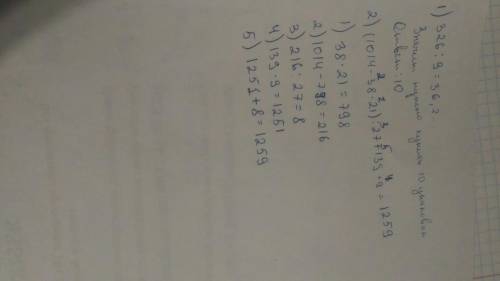 1) 326 : 9 = 36,2
Значит нужно купить 10 упаковок
Ответ: 10
2) (1014 - 38 · 21) : 27 + 139 · 9 = 1259
1) 38 · 21 = 798
2) 1014 - 798 = 216
3) 216 : 27 = 8
4) 139 · 9 = 1251
5) 1251 + 8 = 1259